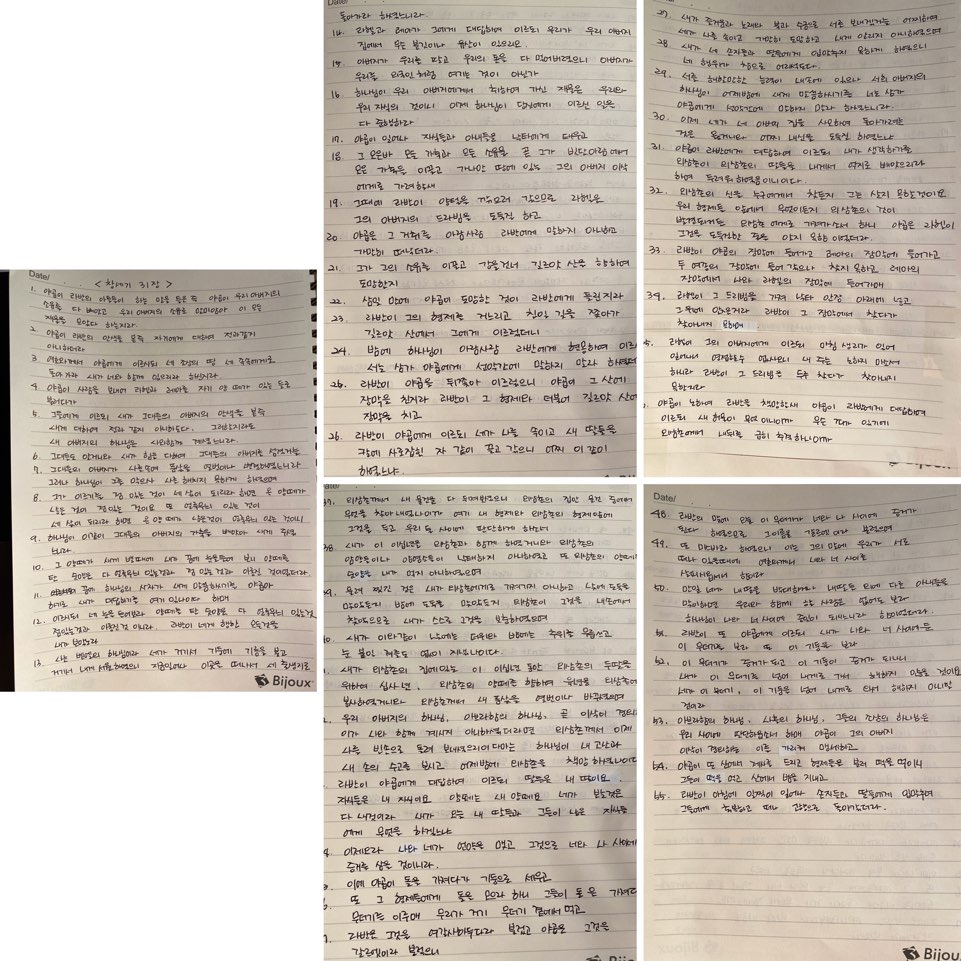 Date/
< 창세기 31장 >
1. 야곱이 라반의 아들들이 하는 말을 들은즉 야곱이 우리 아버지의
소유를 다 빼앗고 우리 아버지의 소유로 말미암아 이 모든
재물을 모았다 하는지라
2. 야곱이 라반의 안색을 본즉 자기에게 대하여 전과 같지
아니하더라
3. 여호와께서 야곱에게 이르시되 네 조상의 땅 네 족속에게로
돌아가라 내가 너와 함께 있으리라 하신지라
4. 야곱이 사람을 보내어 라헬과 레아를 자기 양 떼가 있는 들로
불러다가
5. 그들에게 이르되 내가 그대들의 아버지의 안색을 본즉
내게 대하여 전과 같지 아니하도다. 그러할지라도
내 아버지의 하나님은 나와 함께 계셨느니라
6. 그대들도 알거니와 내가 힘을 다하여 그대들의 아버지를 섬겼거늘
7. 그대들의 아버지가 나를 속여 품삯을 열 번이나 변경하였느니라
그러나 하나님이 그를 막으사 나를 해치지 못하게 하셨으며
8. 그가 이르기를 점 있는 것이 네 삯이 되리라 하면 온 양 떼가
낳은 것이 점 있는 것이요 또 얼룩무늬 있는 것이
네 삯이 되리라 하면 온 양 떼가 낳은 것이 얼룩무늬 있는 것이니
9. 하나님이 이같이 그대들의 아버지의 가축을 빼앗아 내게 주셨
느니라
10. 그 양 떼가 새끼 밸 때에 내가 꿈에 눈을 들어 보니 양 떼를
탄 숫양은 다 얼룩무늬 있는 것과 점 있는 것과 아롱진 것이었더라
11. 꿈에 하나님의 사자가 내게 말씀하시기를 야곱아
하기로 내가 대답하기를 여기 있나이다 하매
12. 이르시되 네 눈을 들어 보라 양 떼를 탄 숫양은 다 얼룩무늬 있는 것
점 있는 것과 아롱진 것이니라. 라반이 네게 행한 모든 것을
내가 보았노라
13. 나는 벧엘의 하나님이라 네가 거기서 기둥에 기름을 붓고
거기서 내게 서원하였으니 지금 일어나 이곳을 떠나서 네 출생지로
Bijoux
돌아가라 하셨느니라.
14. 라헬과 레아가 그에게 대답하여 이르되 우리가 우리 아버지
집에서 무슨 분깃이나 유산이 있으리요.
15. 아버지가 우리를 팔고 우리의 돈을 다 먹어버렸으니 아버지가
우리를 외국인처럼 여기는 것이 아닌가
16. 하나님이 우리 아버지에게서 취하여 가신 재물은 우리와
우리 자식의 것이니 이제 하나님이 당신에게 이르신 일을
다 준행하라
17. 야곱이 일어나 자식들과 아내들을 낙타에게 태우고
18. 그 모은바 모든 가축과 모든 소유물 곧 그가 밧단아람에서
모은 가축을 이끌고 가나안 땅에 있는 그의 아버지 이삭
에게로 가려 할새
19. 그때에 라반이 양털을 깎으러 갔으므로 라헬은
그의 아버지의 드라빔을 도둑질 하고
20. 야곱은 그 거취를 아람사람 라반에게 말하지 아니하고
가만히 떠났더라.
21. 그가 그의 소유를 이끌고 강을 건너 길르앗 산을 향하여
도망한지
22. 삼일 만에 야곱이 도망한 것이 라반에게 들린지라
23. 라반이 그의 형제를 거느리고 칠일 길을 쫓아가
길르앗 산에서 그에게 이르렀더니
24. 밤에 하나님이 아람사람 라반에게 현몽하여 이르
시되 너는 삼가 야곱에게 선악간에 말하지 말라 하셨더
25. 라반이 야곱을 뒤쫓아 이르렀으니 야곱이 그 산에
장막을 친지라 라반이 그 형제와 더불어 길르앗 산에
장막을 치고
26. 라반이 야곱에게 이르되 네가 나를 속이고 내 딸들을
칼에 사로잡힌 자 같이 끌고 갔으니 어찌 이같이
하였느냐
27. 내가 즐거움과 노래와 북과 수금으로 너를 보내겠거늘 어찌하여
네가 나를 속이고 가만히 도망하고 내게 알리지 아니하였으며
28. 내가 내 손자들과 딸들에게 입맞추지 못하게 하였으니
네 행위가 참으로 어리석도다.
29. 너를 해할만한 능력이 내 손에 있으나 너희 아버지의
하나님이 어제밤에 내게 말씀하시기를 너는 삼가
야곱에게 선악간에 말하지 말라 하셨느니라.
30. 이제 네가 네 아버지 집을 사모하여 돌아가려는
것은 옳거니와 어찌 내 신을 도둑질 하였느냐
31. 야곱이 라반에게 대답하여 이르되 내가 생각하기를
외삼촌이 외삼촌의 딸들을 내게서 억지로 빼앗으리라
하여 두려워하였음이니이다.
32. 외삼촌의 신을 누구에게서 찾든지 그는 살지 못할 것이요
우리 형제들 앞에서 무엇이든지 외삼촌의 것이
발견되거든 외삼촌에게로 가져가소서 하니 야곱은 라헬이
그것을 도둑질한 줄을 알지 못함이었더라.
33. 라반이 야곱의 장막에 들어가고 레아의 장막에 들어가고
두 여종의 장막에 들어갔으나 찾지 못하고 레아의
장막에서 나와 라헬의 장막에 들어가매
34. 라헬이 그 드라빔을 가져 낙타 안장 아래에 넣고
그 위에 앉은지라 라반이 그 장막에서 찾다가
찾아내지 못하매
라헬이 그의 아버지에게 이르되 마침 생리가 있어
일어나서 영접할 수 없사오니 내 주는 노하지 마소서
하니라 라반이 그 드라빔을 두루 찾다가 찾아내지
못한지라
야곱이 노하여 라반을 책망할새 야곱이 라반에게 대답하여
이르되 내 허물이 무엇이니이까 무슨 죄가 있기에
외삼촌께서 내 뒤를 급히 추격하나이까
37. 외삼촌께서 내 물건을 다 뒤져보셨으니 외삼촌의 집안 물건 중에서
무엇을 찾아내었나이까 여기 내 형제와 외삼촌의 형제 앞에
그것을 두고 우리 둘 사이에 판단하게 하소서
38. 내가 이 이십년을 외삼촌과 함께 하였거니와 외삼촌의
암양들이나 암염소들이 낙태하지 아니하였고 또 외삼촌의 양떼의
숫양을 내가 먹지 아니하였으며
물려 찢긴 것은 내가 외삼촌에게로 가져가지 아니하고 낮에 도둑을
맞았든지 밤에 도둑을 맞았든지 외삼촌이 그것을 내 손에서
찾았으므로 내가 스스로 그것을 보충하였으며
40. 내가 이와 같이 낮에는 더위와 밤에는 추위를 무릅쓰고
눈 붙일 겨를도 없이 지냈나이다.
내가 외삼촌의 집에 있는 이 이십년 동안 외삼촌의 두 딸을
위하여 십사년, 외삼촌의 양떼를 위하여 육년을 외삼촌에
봉사하였거니와 외삼촌께서 내 품삯을 열번이나 바꾸셨으며
우리 아버지의 하나님, 아브라함의 하나님, 곧 이삭이 경외
이가 나와 함께 계시지 아니하셨더라면 외삼촌께서 이제
나를 빈손으로 돌려보내셨으리이다마는 하나님이 내 고난과
내 손의 수고를 보시고 어제밤에 외삼촌을 책망하셨나이다
라반이 야곱에게 대답하여 이르되 딸들은 내 딸이요.
자식들은 내 자식이요 양떼는 내 양떼요 네가 보는 것은
다 내 것이라 내가 오늘 내 딸들과 그들이 낳은 자식들
에게 무엇을 하겠느냐
이제 오라 나와 네가 언약을 맺고 그것으로 너와 나 사이에
증거를 삼을 것이니라.
이에 야곱이 돌을 가져다가 기둥으로 세우고
또 그 형제들에게 돌을 모으라 하니 그들이 돌을 가져다
무더기를 이루매 우리가 거기 무더기 곁에서 먹고
라반은 그것을 여갈사하두다라 불렀고 야곱은 그것을
갈르엣이라 불렀으니
Bijoux
Date/
48. 라반의 말에 오늘 이 무더기가 너와 나 사이에 증거가
된다 하였으므로 그 이름을 갈르엣이라 불렀으며
49. 또 미스바라 하였으니 이는 그의 말에 우리가 서로
떠나 있을 때에 여호와께서 너와 나 사이를
살피시옵소서 함이라
50. 만일 네가 내 딸을 박대하거나 내 딸들 외에 다른 아내들을
맞이하면 우리와 함께 할 사람은 없어도 보라
하나님이 나와 너 사이에 증인이 되시느니라 함이었더라.
51. 라반이 또 야곱에게 이르되 내가 나와 너 사이에 둔
이 무더기를 보라 또 이 기둥을 보라
52. 이 무더기가 증거가 되고 이 기둥이 증거가 되나니
내가 이 무더기를 넘어 네게로 가서 해하지 않을 것이요
네가 이 무더기, 이 기둥을 넘어 내게로 와서 해하지 아니할
것이라
53. 아브라함의 하나님, 나홀의 하나님, 그들의 조상의 하나님은
우리 사이에 판단하옵소서 하매 야곱이 그의 아버지
이삭이 경외하는 이를 가리켜 맹세하고
54. 야곱이 또 산에서 제사를 드리고 형제들을 불러 떡을 먹이니
그들이 떡을 먹고 산에서 밤을 지내고
55. 라반이 아침에 일찍이 일어나 손자들과 딸들에게 입맞추며
그들에게 축복하고 떠나 고향으로 돌아갔더라.
Bijoux